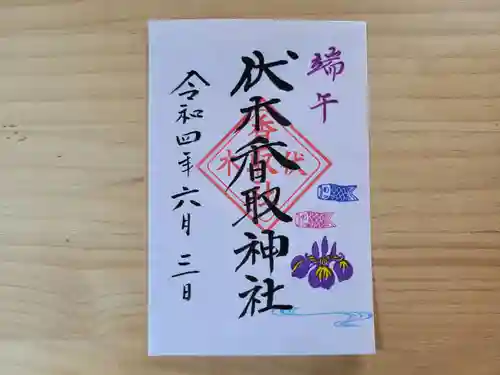 端午
伏木香取神社
令和四年六月三日